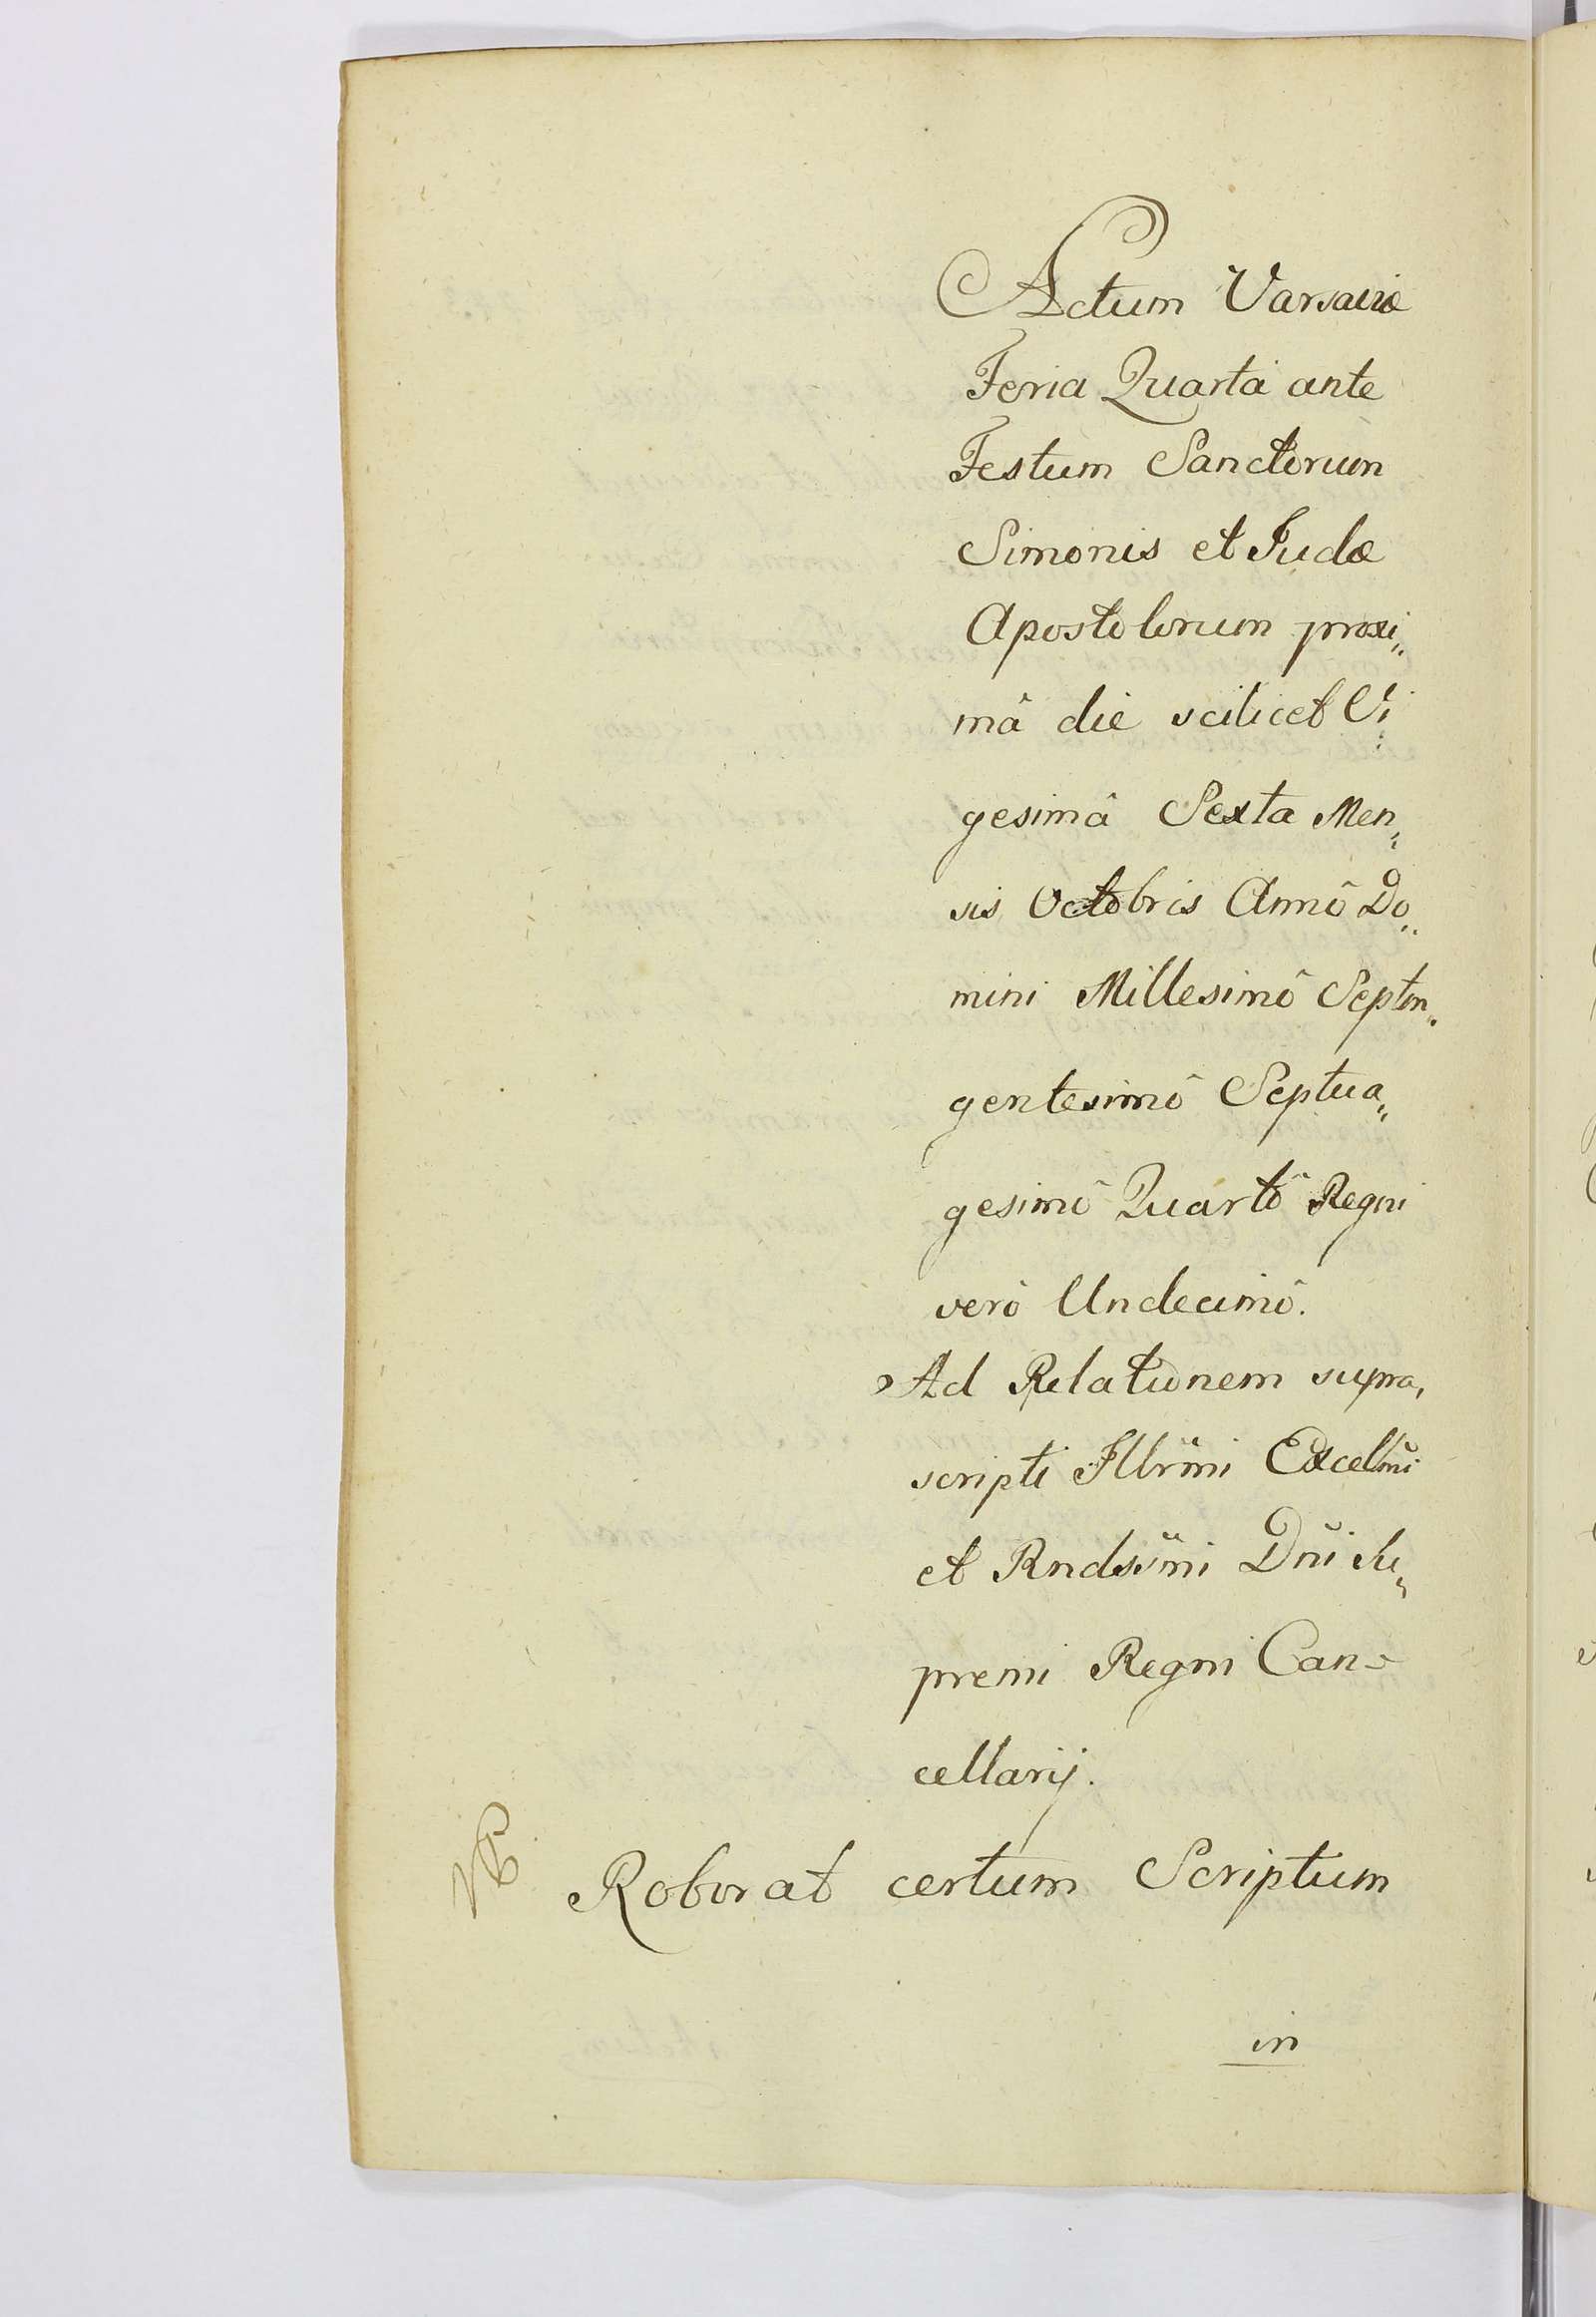 Actum Varsaviæ
Feria Quarta ante
Festum Sanctorum
Simonis et Judæ
Apostolorum proxi„
mâ die scilicet Vi„
gesimâ Sexta Men„
sis Octobris Annô Do„
mini Millesimô Septin„
gentesimô Septua„
gesimô Quartô Regni
verô Undecimô.
Ad Relationem supra„
scripti Illr̃mi Excellm̃i
et Rndss̃mi Dñi Su„
premi Regni Can-
cellarij.
NB Roborat certum Scriptum
in